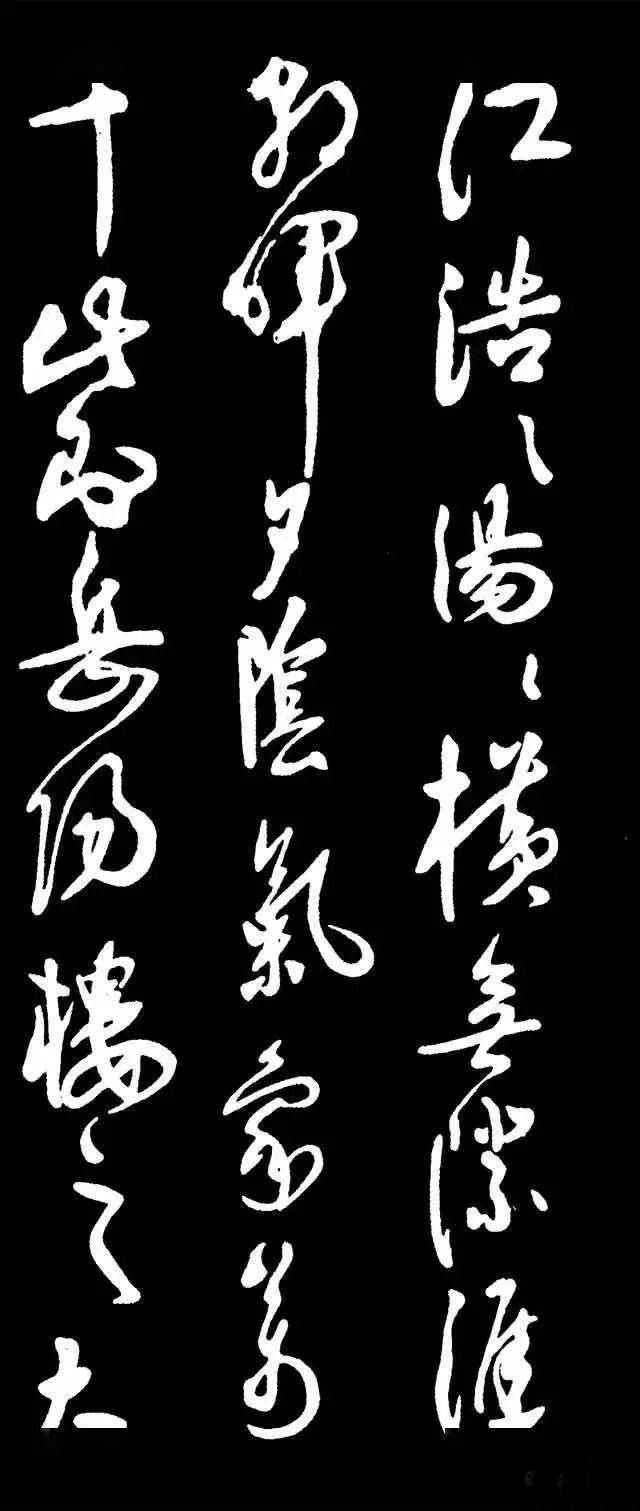 江浩〻湯〻橫無際涯
朝暉夕陰氣象萬
千此則岳陽樓之大